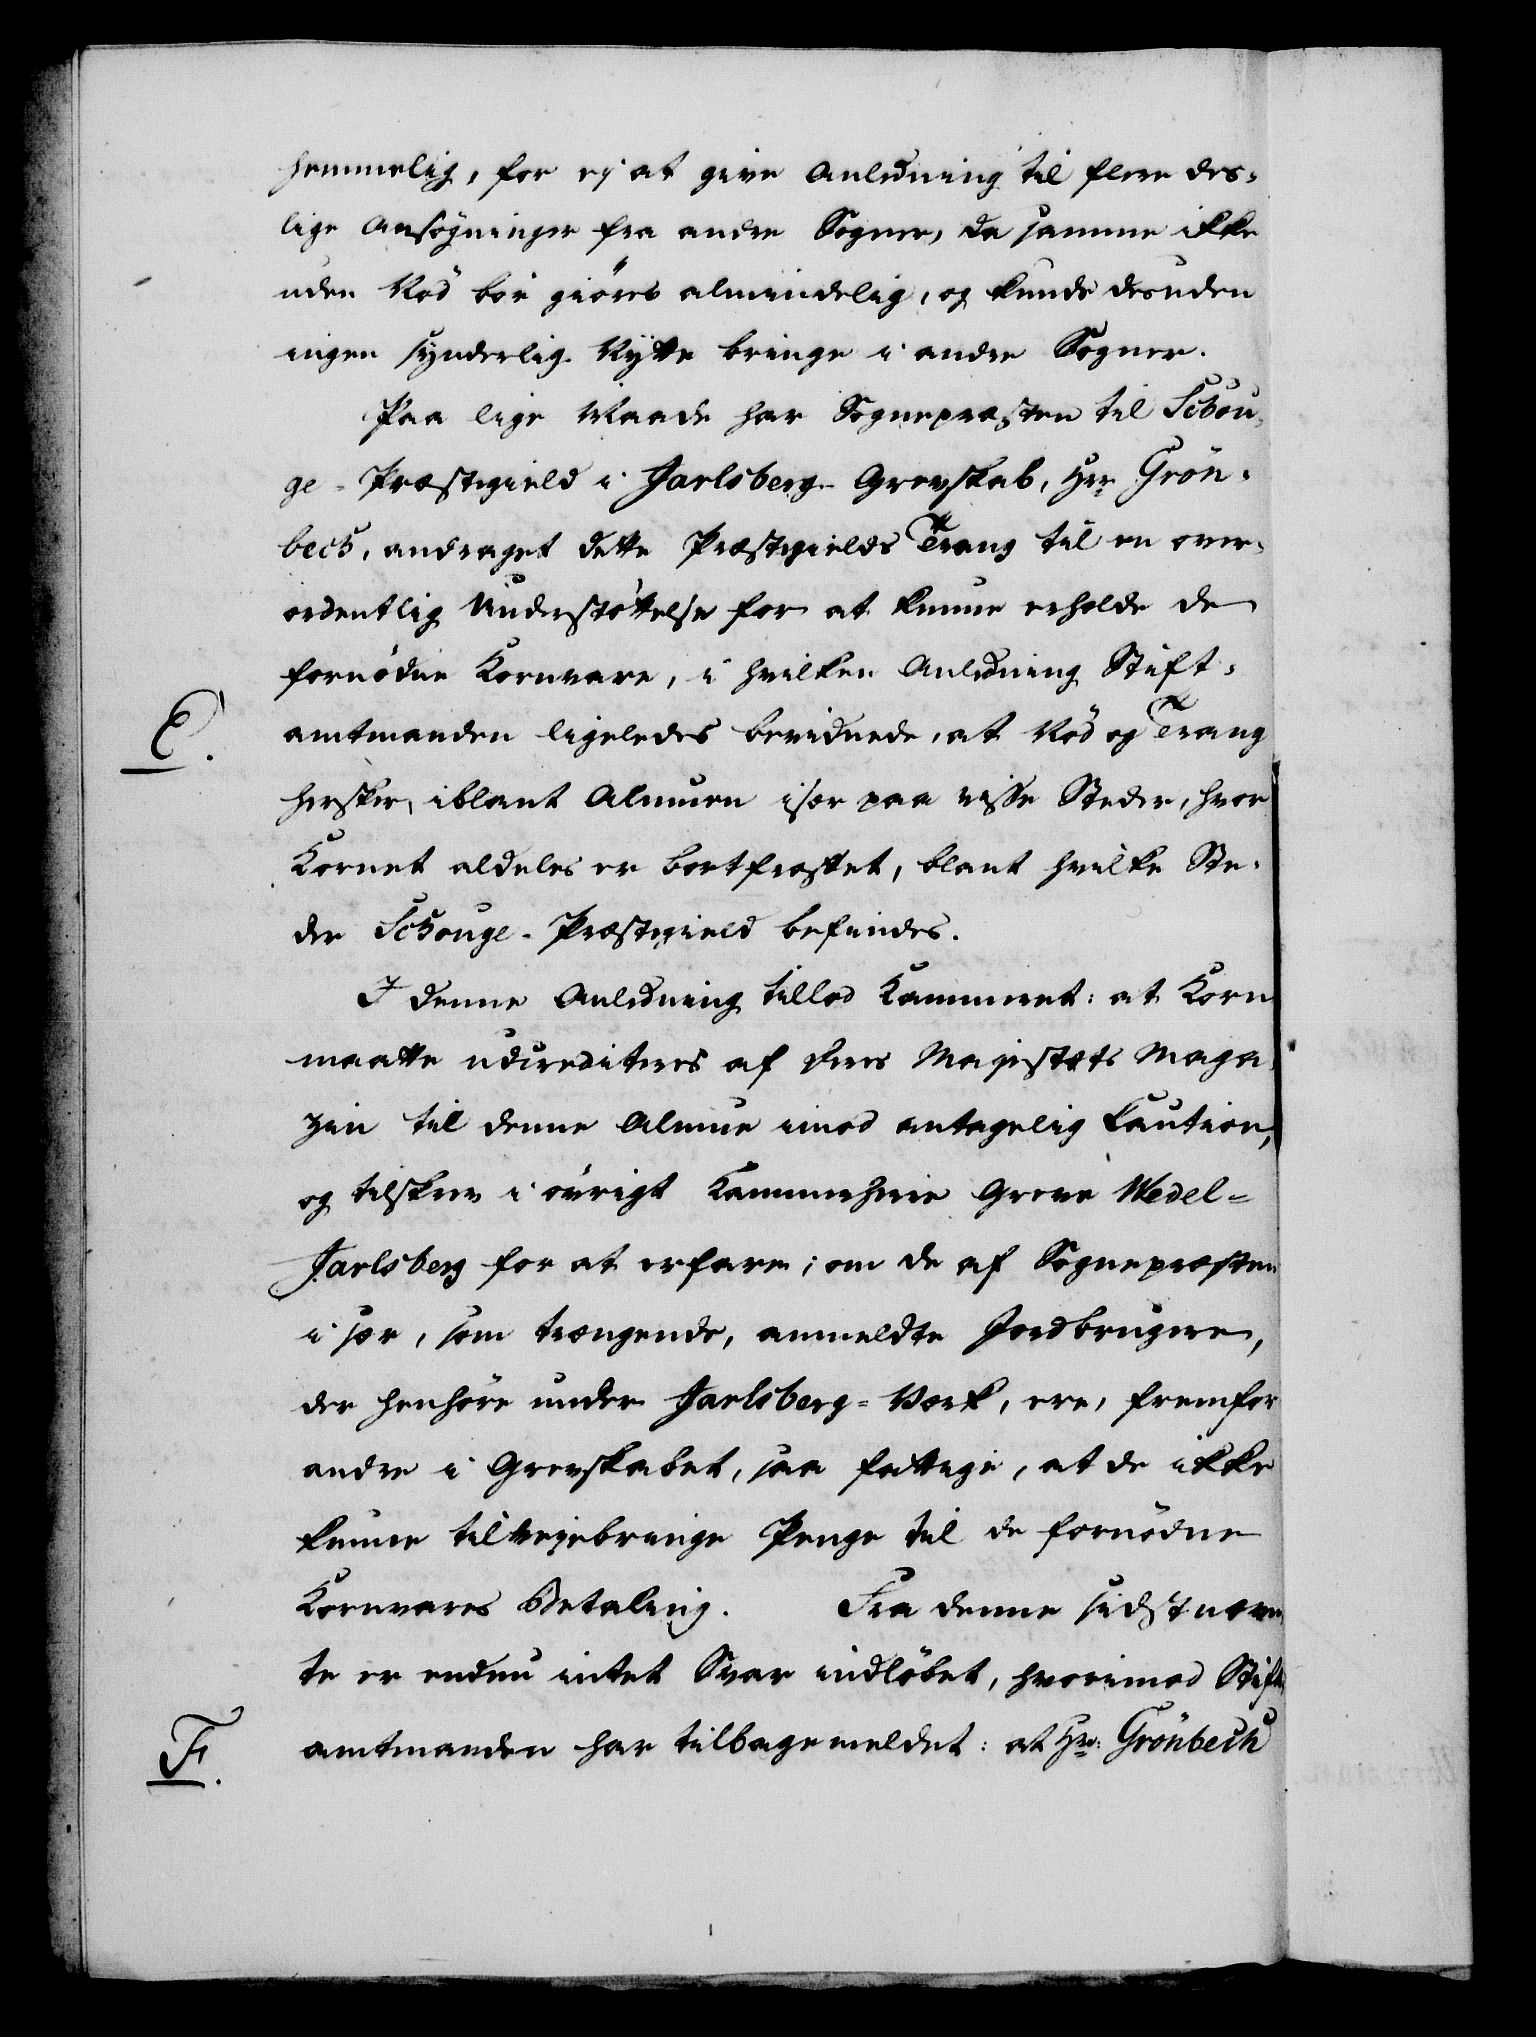 hemmelig, for ej at give Anledning til flere des-
lige Ansøgninger fra andre Sogner, da samme ikke
uden Nød bør giøres almindelig, og kunde desuden
ingen synderlig Nytte bringe i andre Sogner.
Paa lige Maade har Sognepræsten til Schou-
ge-Præstegield i Jarlsberg-Grevskab, Hr: Grön-
bech, andraget dette Præstegields Trang til en over-
ordentlig Understøttelse for at kunne erholde de
fornødne Kornvare, i hvilken Anledning Stift-
E.
amtmanden ligeledes bevidnede, at Nød og Trang
hersker iblant Almuen især paa visse Steder, hvor
Kornet aldeles er bortfrostet, blant hvilke Ste-
der Schouge-Præstegield befindes.
I denne Anledning tillod Kammeret: at Korn
maatte udcrediteres af Deres Majestæts Maga-
zin til denne Almue imod antagelig Caution,
og tilskrev i øvrigt Kammerherre Greve Wedel-
Jarlsberg for at erfare; om de af Sognepræsten
i sær, som trængende, anmeldte Jordbrugere,
der henhøre under Jarlsberg-Værk, ere, fremfor
andre i Grevskabet, saa fattige, at de ikke
kunne tilvejebringe Penge til de fornødne
Kornvares Betaling. Fra denne sidstnævn-
te er endnu intet Svar indløbet, hvorimod Stift-
F.
amtmanden har tilbagemeldet: at Hr: Grönbech